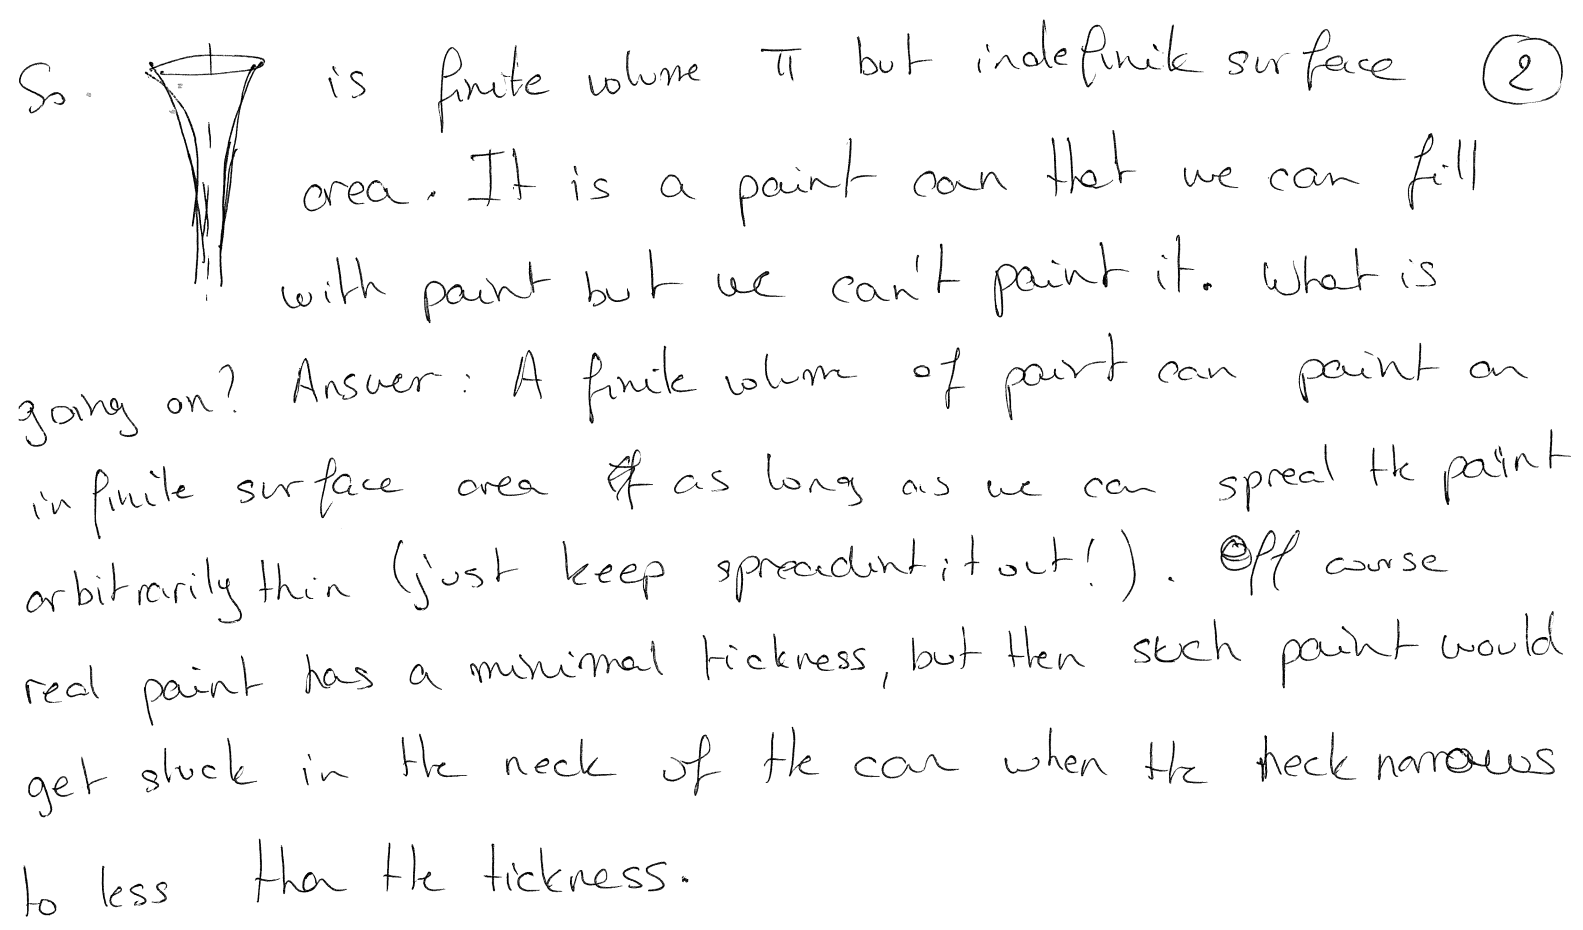 So is finite volume π but indefinite surface 2
area. It is a paint can that we can fill
with paint but we can't paint it. What is
going on? Answer: A finite volume of paint can paint an
infinite surface area as long as we can spread the paint
arbitrarily thin (just keep spreadint it out!). Off course
real paint has a minimal tickness, but then such paint would
get stuck in the neck of the can when the neck narrows
to less than the tickness.